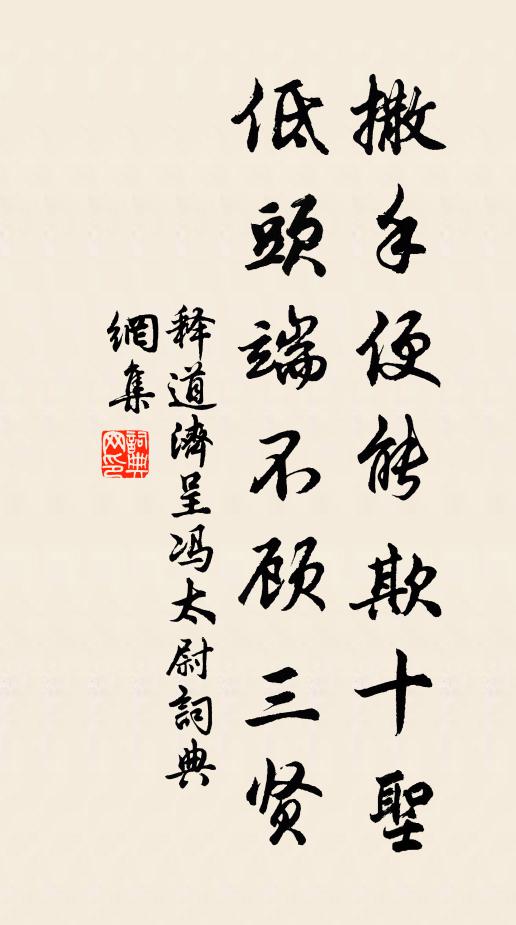 撒手便能欺十聖
低頭端不顾三贤
释道濟呈冯太尉詞典
網集
詞典
网印